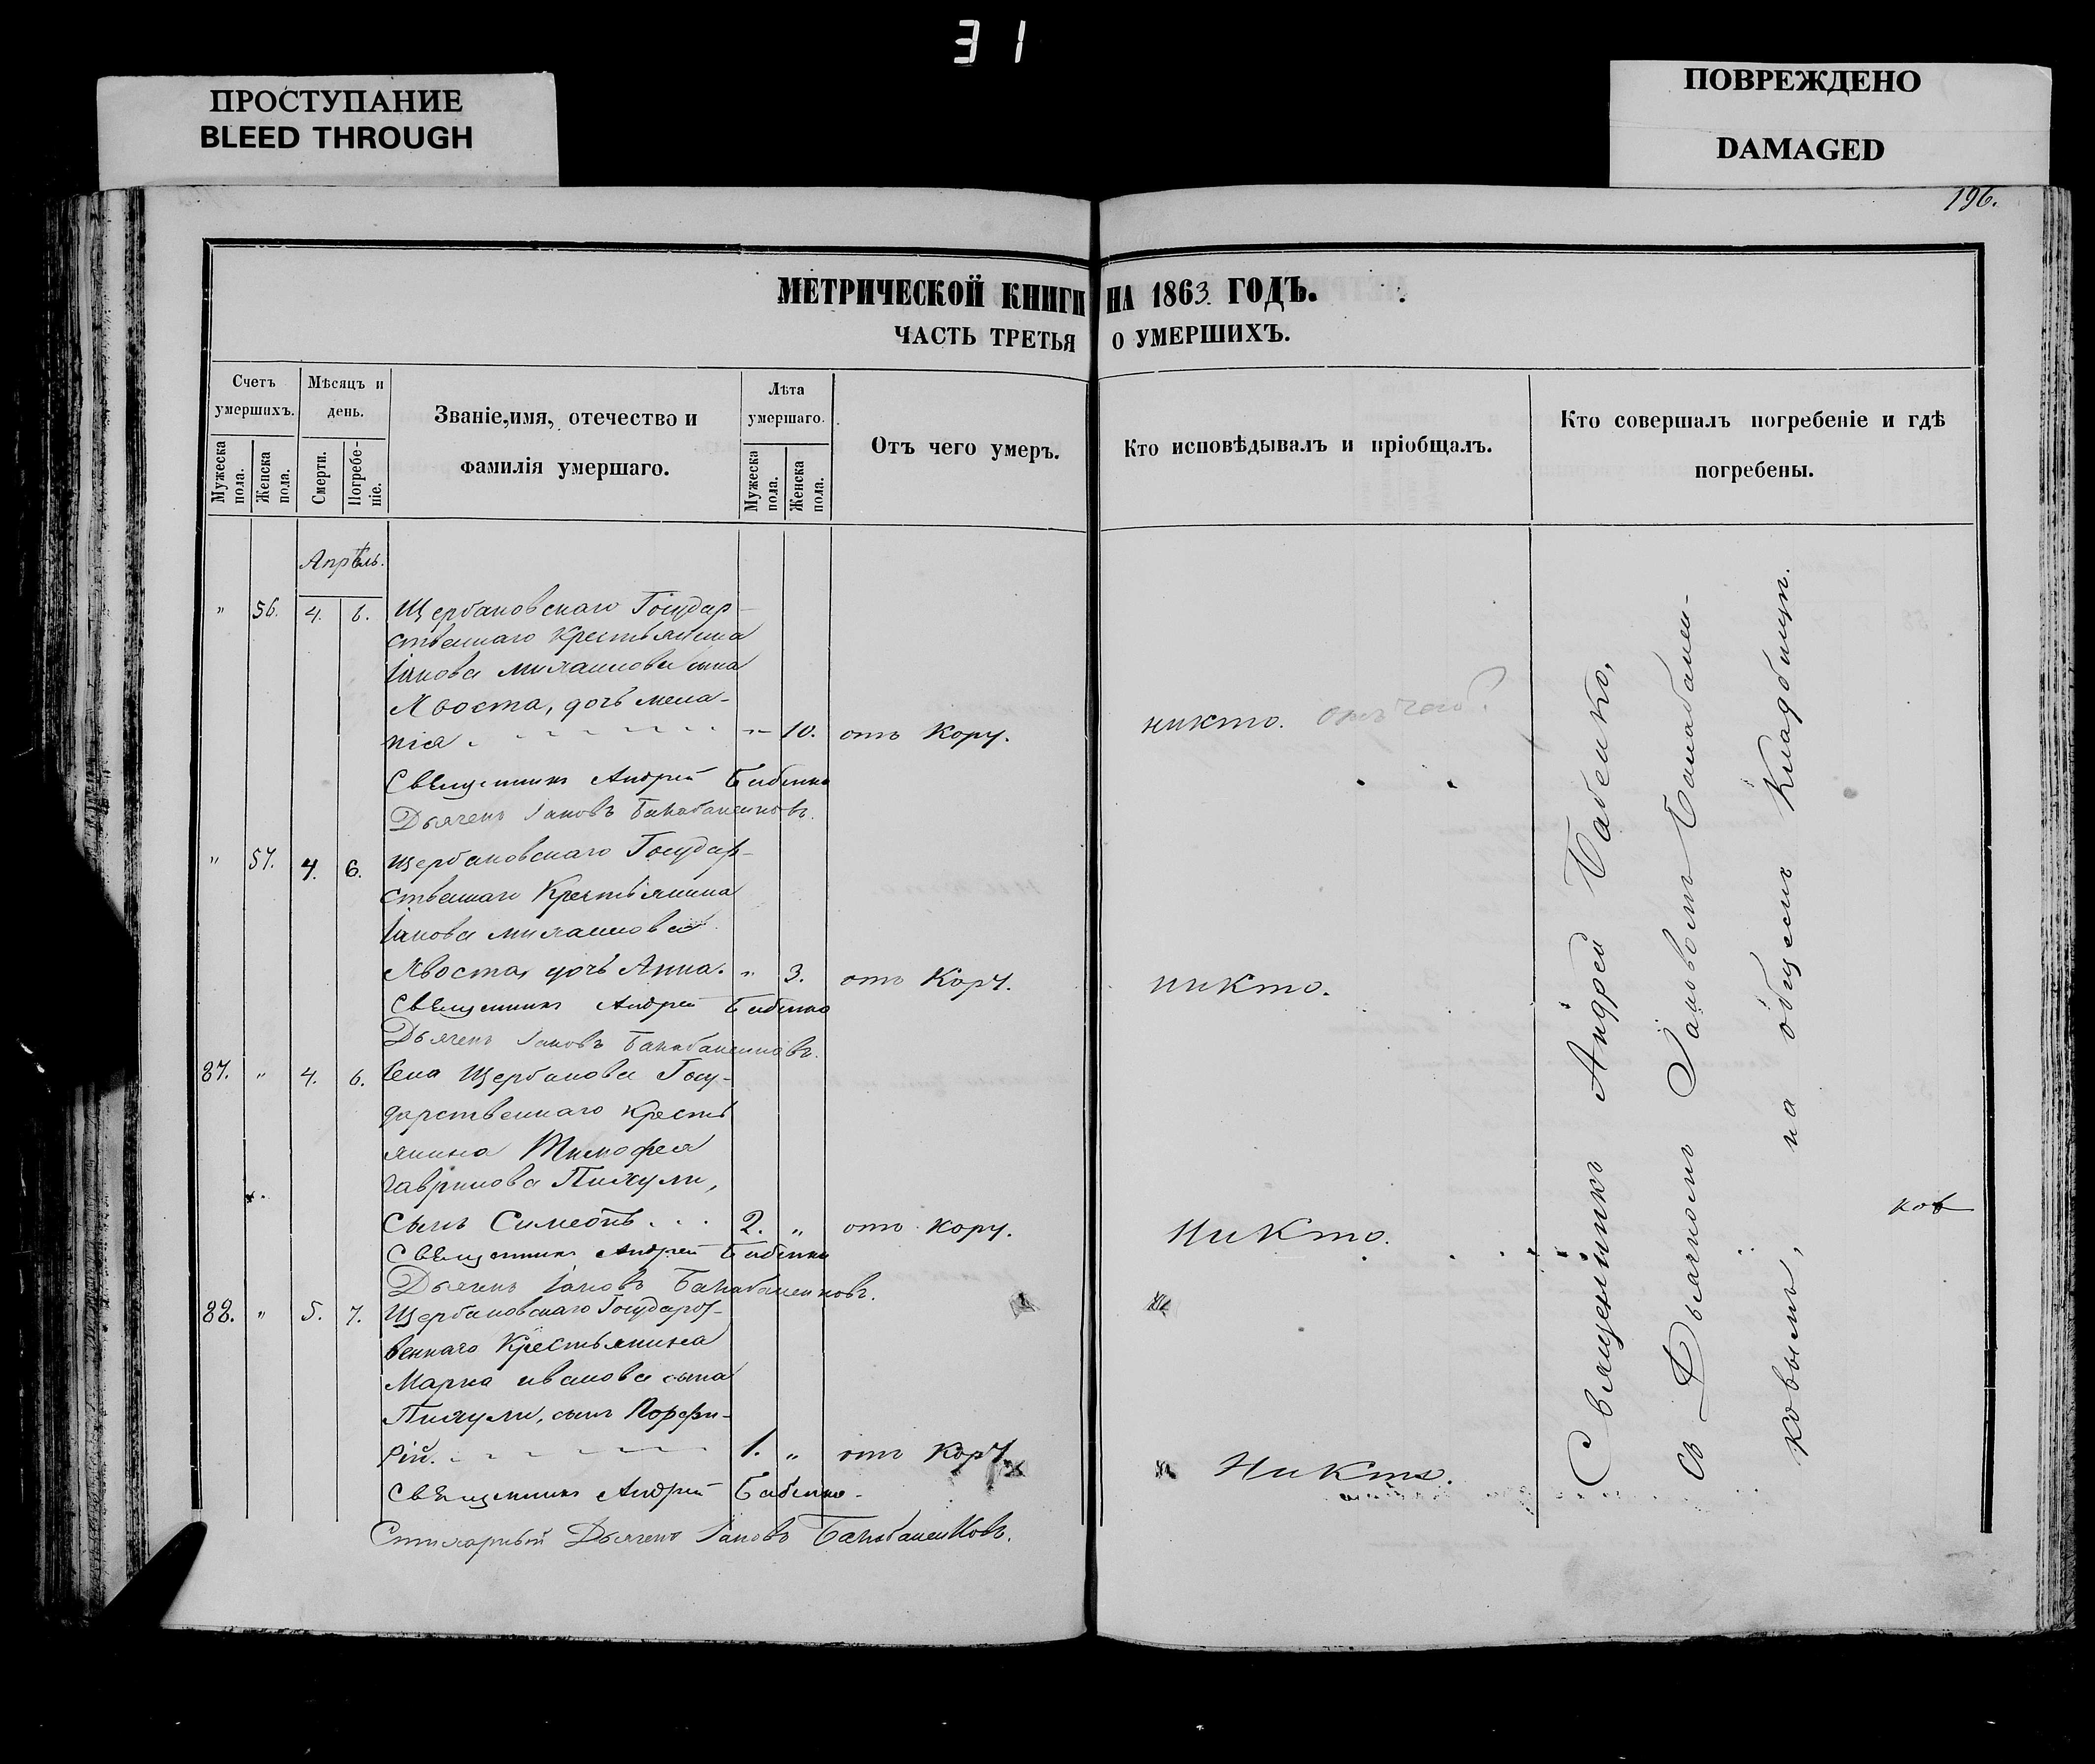 31
ПРОСТУПАНИЕ
BLEED THROUGH
ПОВРЕЖДЕНО
DAMAGED
196.
МЕТРИЧЕСКОЙ КНИГИ НА 1863 ГОДЪ.
ЧАСТЬ ТРЕТЬЯ О УМЕРШИХЪ.
Счетъ умершихъ.
Мужеска пола.
Женска пола.
Мѣсяцъ и день.
Смерти.
Погребеніе.
Званіе, имя, отечество и фамилія умершаго.
Лѣта умершаго.
Мужеска пола.
Женска пола.
Отъ чего умеръ.
Кто исповѣдывалъ и пріобщалъ.
Кто совершалъ погребеніе и гдѣ погребены.
Апрѣль.
" 56. 4. 6. Щербановскаго Государ-
ственнаго Крестьянина
Іакова Михаилова сына
Хвоста, дочь Мела-
нія " 10. отъ Кору. никто.
Священникъ Андрей Бабенко
Дьячекъ Іаковъ Балабаненковъ.
" 57. 4. 6. Щербановскаго Государ-
ственнаго Крестьянина
Іакова Михаилова
Хвоста, дочь Анна. " 3. отъ Кору. никто.
Священникъ Андрей Бабенко
Дьячекъ Іаковъ Балабаненковъ.
87. " 4. 6. Села Щербанова Госу-
дарственнаго Кресть
янина Тимофея
Гаврилова Пихули,
сынъ Симеонъ... 2. " отъ кору. Никто.
Священникъ Андрей Бабенко
Дьячекъ Іаковъ Балабаненковъ.
88. " 5. 7. Щербановскаго Государст-
веннаго Крестьянина
Марка Иванова сына
Пихули, сынъ Порфи-
рій. 1. " отъ Кору. Никто.
Священникъ Андрей Бабенко.
Стихарный Дьячекъ Іаковъ Балабаненковъ.
Священникъ Андрей Бабенко,
съ Дьячкомъ Іаковомъ Балабанен-
ковымъ, на общемъ Кладбищѣ.
ков